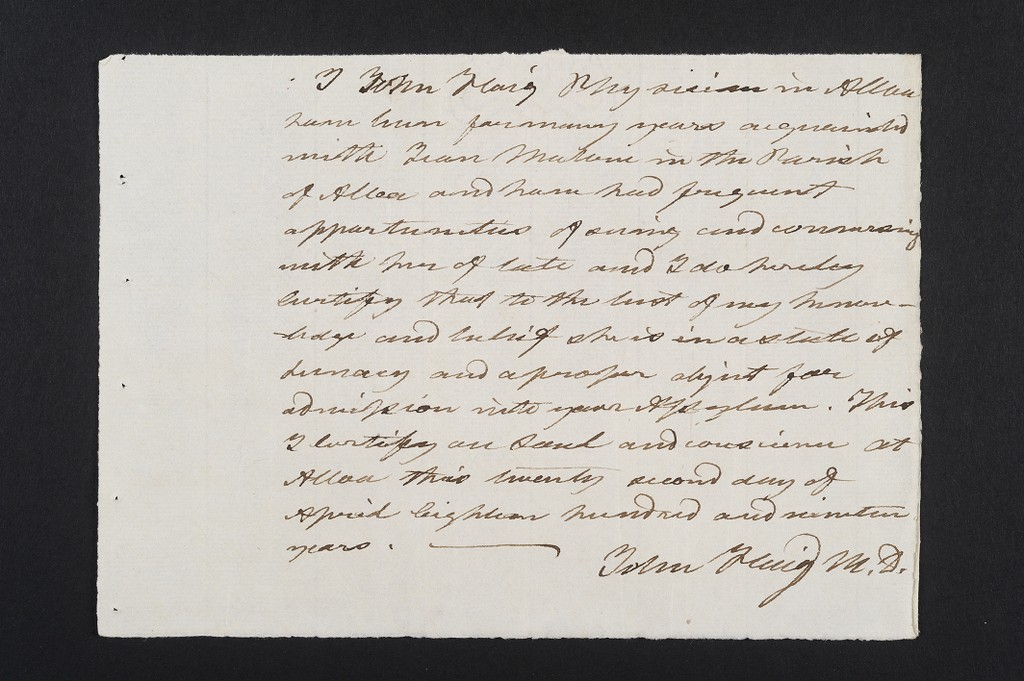 I John Haig Physician in Alloa
have been for many years acquainted
with Jean Malone in the Parish
of Alloa and have had frequent
oppertunitus of seeing and conversing
with her of late and I do hereby
certify that to the best of my know-
ledge and belief she is in a state of
Lunacy and a proper object for
admission into your Assylum. This
I certify on Soul and conscience at
Alloa this twenty second day of
April Eighteen hundred and nineteen
years.
John Haig M.D.